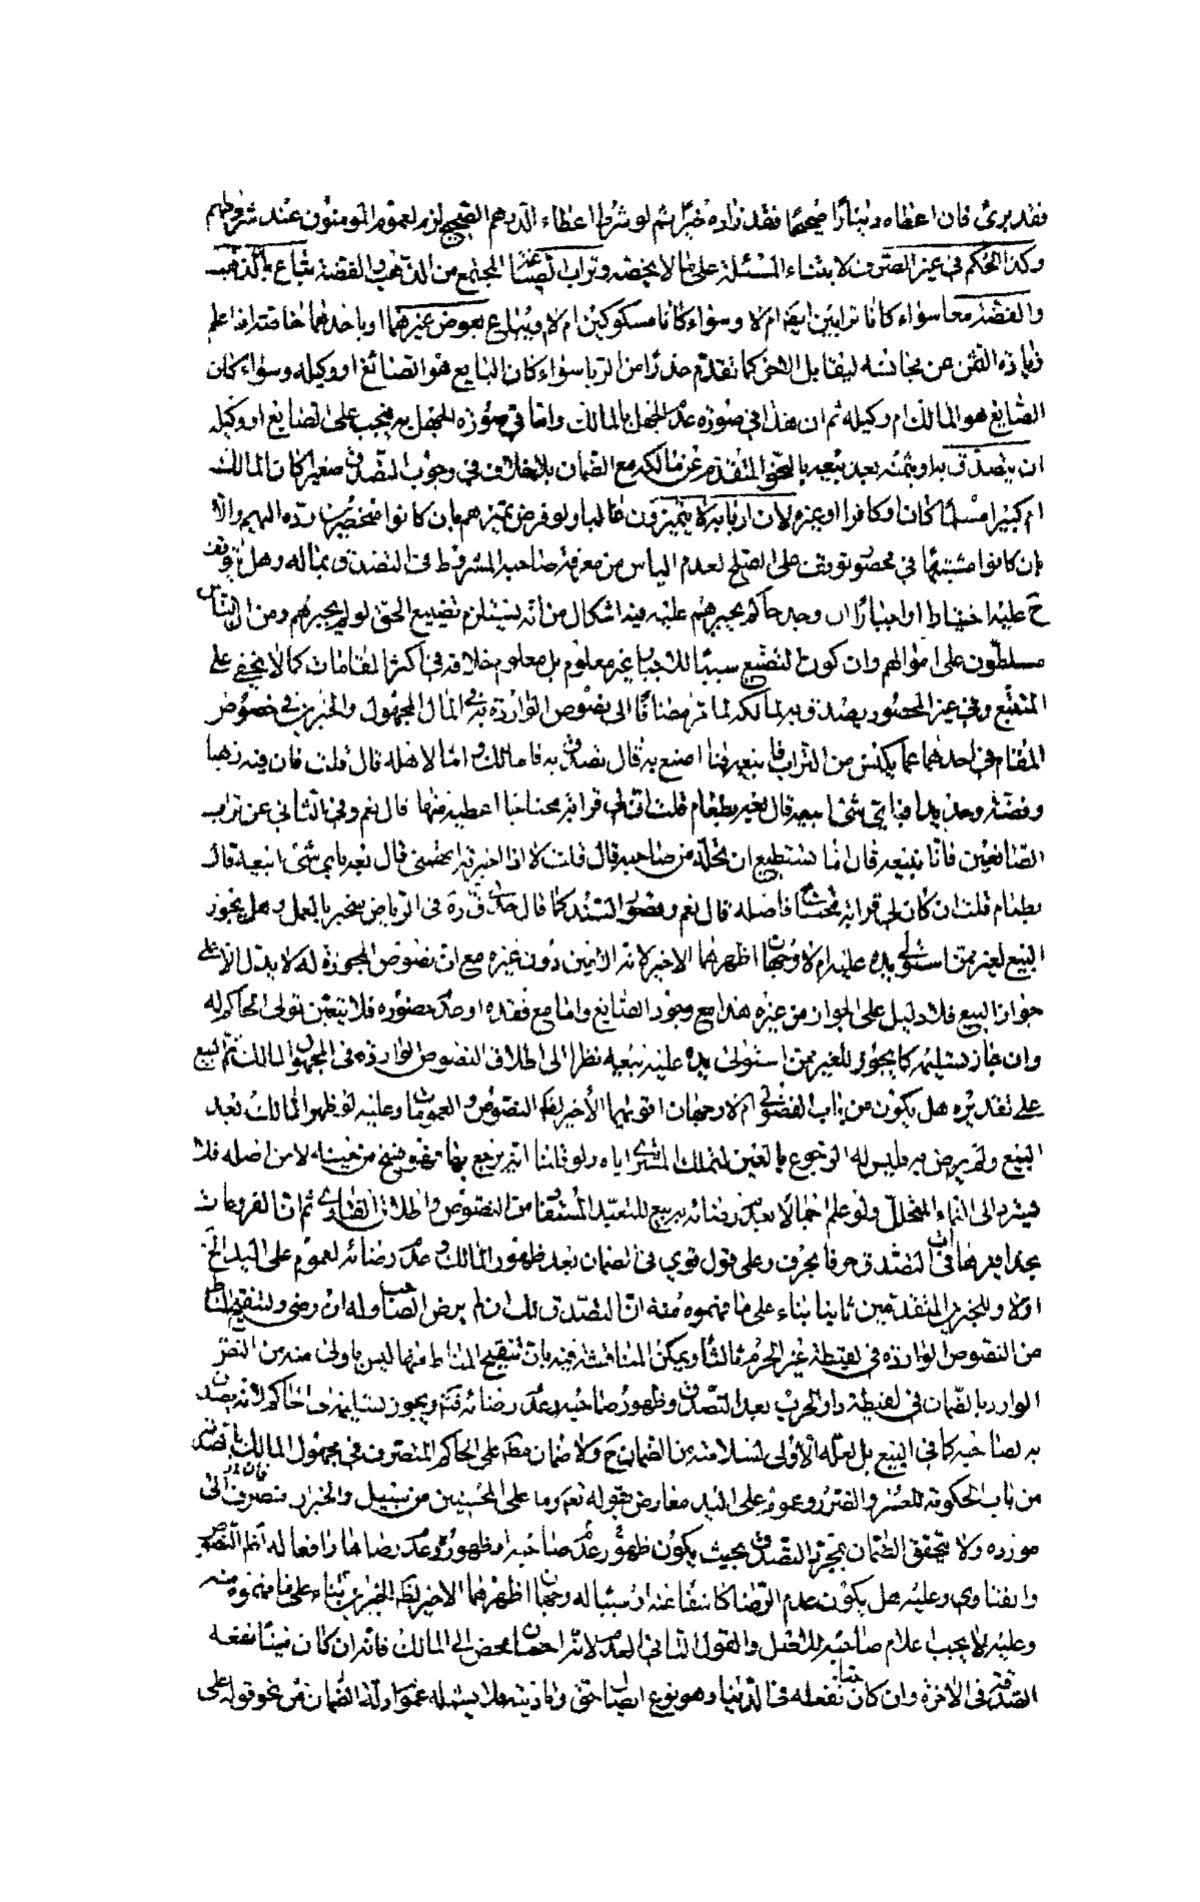 فقد برئ فان اعطاه دينارًا صحيحًا فقد زاده خيرًا ثم لو شرط اعطاء الدرهم الصحيح لزم لعموم المؤمنون عند شروطهم
وكذا الحكم في غير الصرف لابتناء المسئلة على ما لا يخصه وتراب الصياغة المجتمع من الذهب والفضة يباع بالذهب
والفضة معا سواء كانا ترابين ايضا ام لا وسواء كانا مسكوكين ام لا ويباع بعوض غيرهما او باحدهما خاصة اذا علم
زيادة الثمن عن مجانسه ليقابل الاخر كما تقدم حذرًا من الربا سواء كان البايع هو الصائغ او وكيله وسواء كان
الصايغ هو المالك ام وكيله ثم ان هذا في صورة عدم الجهل بالمالك واما في صورة الجهل به فيجب على الصايغ او وكيله
ان يتصدق به او بثمنه بعد بيعه بالنحو المتقدم عن مالكه مع الضمان بلا خلاف في وجوب التصدق صغيرا كان المالك
ام كبيرا مسلما كان او كافرا او غيره لان اربابه لا يتميزون غالبا ولو فرض تميزهم بان كانوا منحصرين رده اليهم والا
بان كانوا مشتبها في محصور توقف على الصلح لعدم الياس من معرفة صاحبه المشروط في التصدق بماله وهل يتوقف
ح عليه احتياطا او اجبارًا ان وجد حاكم يجبرهم عليه فيه اشكال من انه يستلزم تضييع الحق لو لم يجبرهم ومن ان الناس
مسلطون على اموالهم وان كون التضيع سببًا للاجبار غير معلوم بل معلوم خلافه في اكثر المقامات كما لا يخفى على
المتتبع وفي غير المحصور يصدق به لمالكه لما مر مضافًا الى نصوص الواردة في المال المجهول والخبرين في خصوص
المقام في احدهما عما يكنس من التراب فابيعه فما اصنع به قال تصدق به فاما لك واما لاهله قال قلت فان فيه ذهبا
وفضة وحديدا فباي شئ ابيعه قال بعه بطعام قلت فان لي قرابة محتاجا اعطيه منها قال نعم وفي الثاني عن تراب
الصائغين فانا نبيعه قال اما تستطيع ان تحله من صاحبه قال قلت لا اذا اخبرته اتهمني قال بعه باي شئ ابيعه قال
بطعام قلت ان كان لي قرابة محتاج فاصله قال نعم وقصور السند كما قال في الرياض منجبر بالعمل وهل يجوز
البيع لغيره ممن استولى يده عليه ام لا وجهان اظهرهما الاخير لانه الامين دون غيره مع ان نصوص المجوزة له لا يدل الا على
جواز البيع فلا دليل على الجواز من غيره هذا مع وجود الصايغ واما مع فقده او عدم حضوره فلا يتعين تولى الحاكم له
وان جاز تسليمه كما يجوز للغير ممن استولى يده عليه بيعه نظرا الى اطلاق النصوص الواردة في المجهول المالك ثم البيع
على تقديره هل يكون من باب الفضولي ام لا وجهان اقويهما الاخير لظ النصوص والعمومات وعليه لو ظهر المالك بعد
البيع ولم يرض به فليس له الرجوع بالعين لتملك المشتري اياه ولو قلنا انه يرجع بها فهو فسخ من حينه لا من اصله فلا
فيرد الى النماء المتخلل ولو علم اجمالا بعدم رضائه به بيع للتعبد المستفاد من النصوص واطلاق الفتاوى ثم ان الفروعات
بعد رضائه لعموم على اليد الخ
اولا وللخبرين المتقدمين ثانيا بناء على ما فهموه منه ان التصدق لك ان لم يرض الصاحب وله ان رضى ولتنقيح المناط
من النصوص الواردة في لقيطة غير الحرم ثالثا ويمكن المناقشة فيه بان تنقيح المناط منها ليس باولى منه من النص
الوارد بالضمان في لقيطة دار الحرب بعد التصدق وظهور صاحبه وعدم رضائه فتم ويجوز تسليمه الى الحاكم لانه يصدق
به لصاحبه كما في البيع بل لعله الاولى لسلامته من الضمان ح ولا ضمان مط على الحاكم المتصرف في مجهول المالك بالتصدق
من باب الحكومة للعسر والضرر وعموم على اليد معارض بقوله نعم وما على المحسنين من سبيل والخبر منصرف الى
مورده ولا يتحقق الضمان بمجرد التصدق بحيث يكون ظهور عدم صاحبه او ظهوره وعدم رضاها رافعا له النصوص
والفتاوى وعليه هل يكون عدم الرضا كاشفا عنه او سببا له وجهان اظهرهما الاخير لظ الخبرين بناء على ما فهموه منه
وعليه لا يجب اعلام صاحبه للاصل والقول الثاني العدم لانه احسان محض الى المالك فانه ان كان ميتًا نفعه
الصدقة في الاخرة وان كان حيا نفعه له في الدنيا وهو نوع ايصال حق واذنية فلا يشمله عموم ادلة الضمان من نحو قوله على